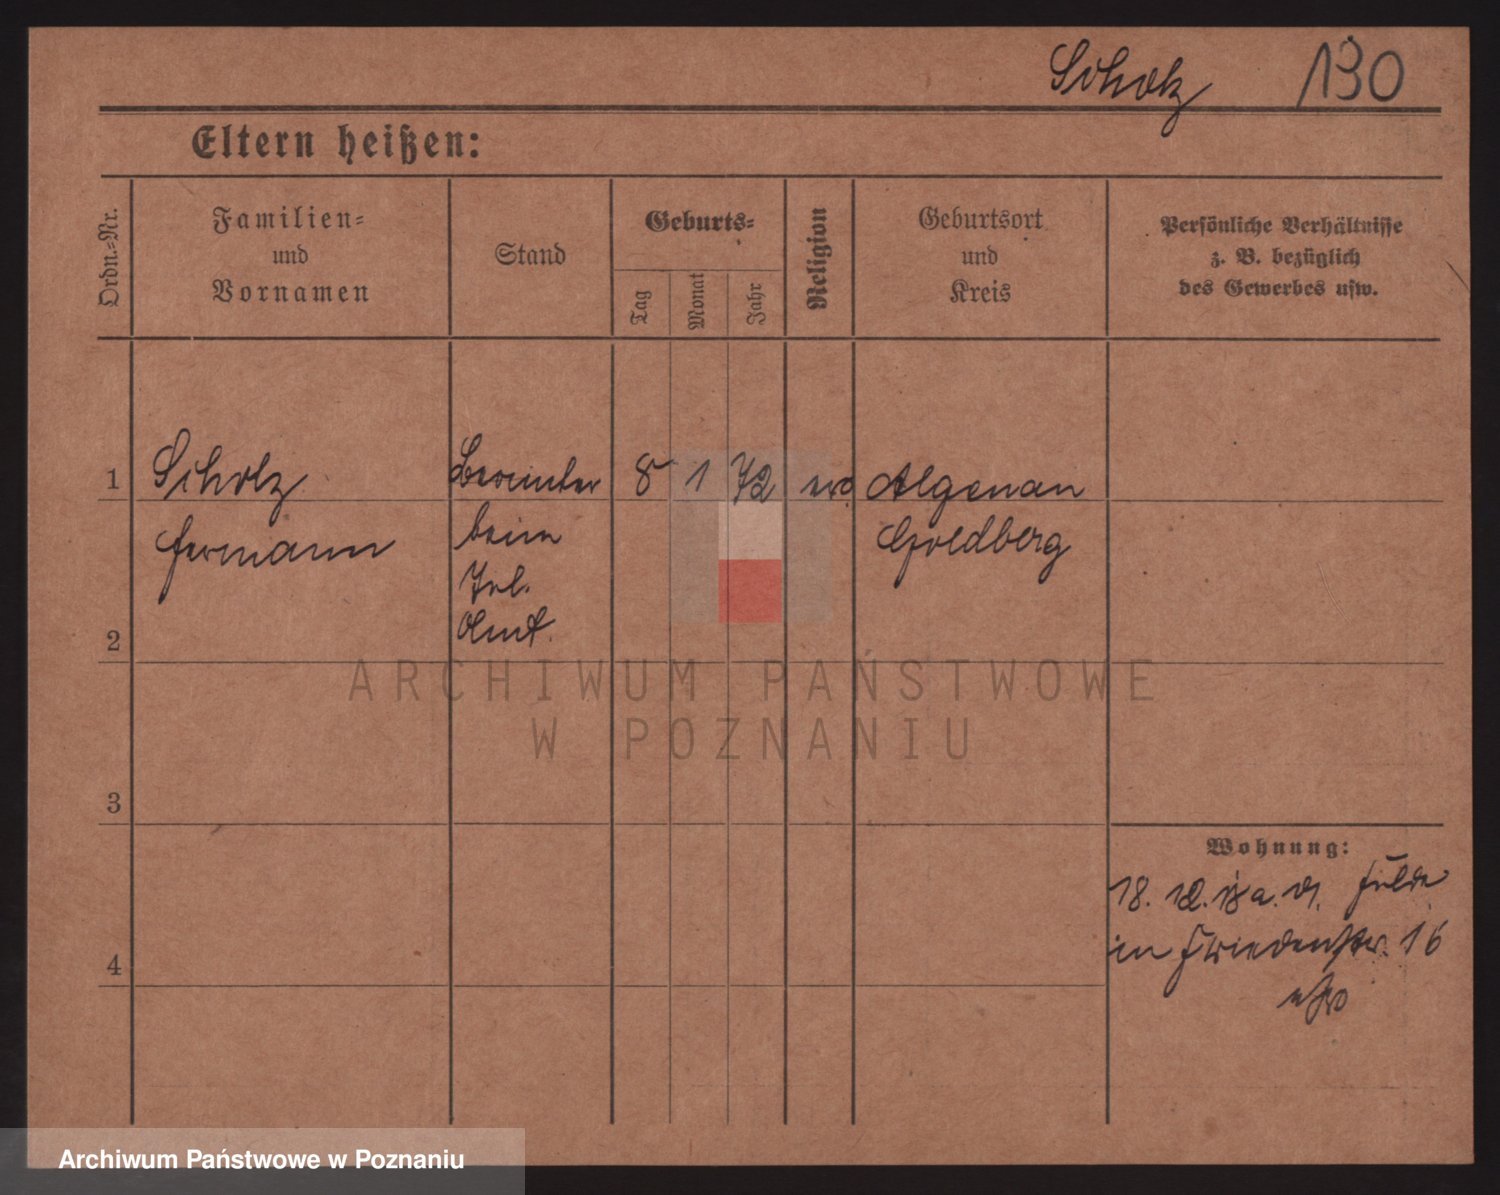 Scholz 130
Eltern heißen:
Ordn.-Nr.
Familien-
und
Vornamen
Stand
Geburts-
Tag
Monat
Jahr
Religion
Geburtsort
und
Kreis
Persönliche Verhältnisse
z. B. bezüglich
des Gewerbes usw.
1 Scholz Beamter 8 1 72 ev Algenau
Hermann beim Goldberg
Tel.
2 Amt.
ARCHIWUM PAŃSTWOWE
W POZNANIU
3
Wohnung:
18. 12.
in Friedenstr. 16
4
Archiwum Państwowe w Poznaniu